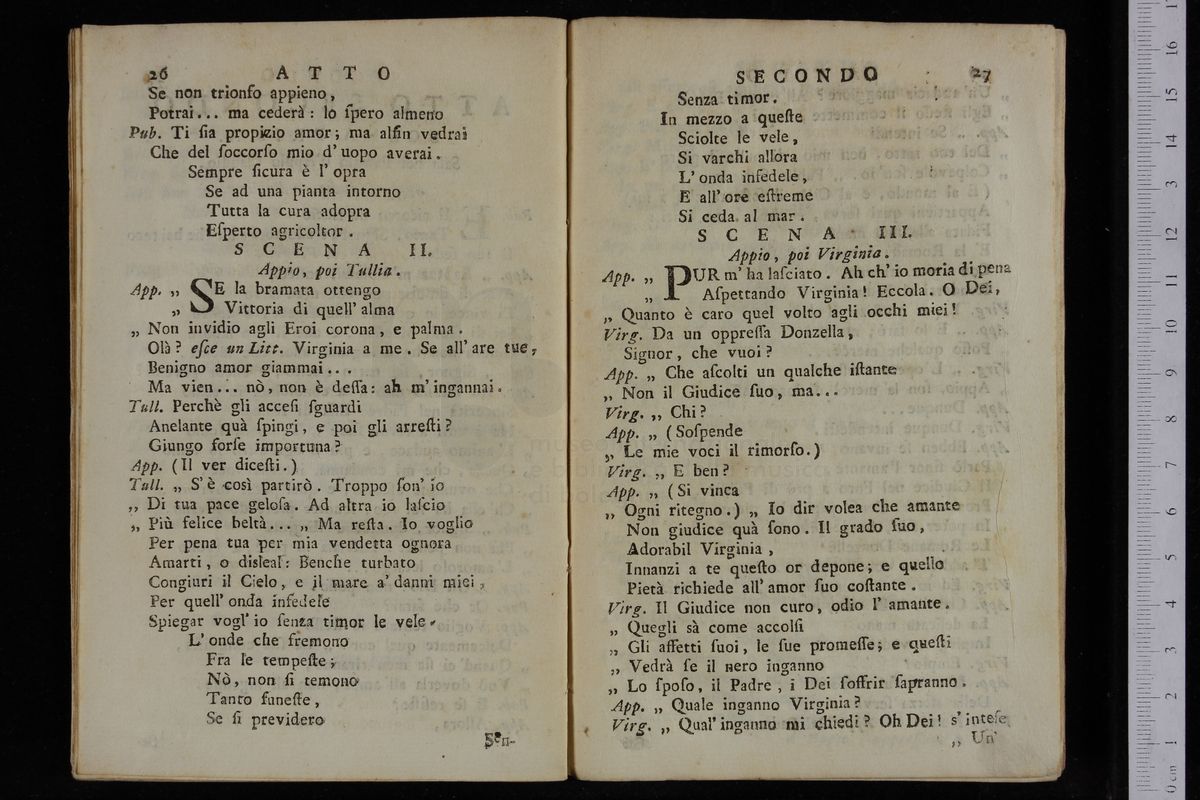 26 ATTO
Se non trionfo appieno,
Potrai... ma cederà: lo ſpero almeno
Pub. Ti ſia propizio amor; ma alfin vedrai
Che del ſoccorſo mio d' uopo averai.
Sempre ſicura è l' opra
Se ad una pianta intorno
Tutta la cura adopra
Eſperto agricoltor.
SCENA II.
Appio, poi Tullia.
App. „ SE la bramata ottengo
„ Vittoria di quell' alma
„ Non invidio agli Eroi corona, e palma.
Olà? eſce un Litt. Virginia a me. Se all' are tue,
Benigno amor giammai...
Ma vien... nò, non è deſſa: ah m' ingannai.
Tull. Perchè gli acceſi ſguardi
Anelante quà ſpingi, e poi gli arreſti?
Giungo forſe importuna?
App. (Il ver diceſti.)
Tull. „ S' è così partirò. Troppo ſon' io
„ Di tua pace geloſa. Ad altra io laſcio
„ Più felice beltà... „ Ma reſta. Io voglio
Per pena tua per mia vendetta ognora
Amarti, o disleal: Benche turbato
Congiuri il Cielo, e il mare a' danni miei,
Per quell' onda infedele
Spiegar vogl' io ſenza timor le vele.
L' onde che fremono
Fra le tempeſte;
Nò, non ſi temono
Tanto funeſte,
Se ſi previdero
Sen-
SECONDO 27
Senza timor.
In mezzo a queſte
Sciolte le vele,
Si varchi allora
L' onda infedele,
E all' ore eſtreme
Si ceda al mar.
SCENA III.
Appio, poi Virginia.
App. „ PUR m' ha laſciato. Ah ch' io moria di pena
„ Aſpettando Virginia! Eccola. O Dei,
„ Quanto è caro quel volto agli occhi miei!
Virg. Da un oppreſſa Donzella,
Signor, che vuoi?
App. „ Che aſcolti un qualche iſtante
„ Non il Giudice ſuo, ma...
Virg. „ Chi?
App. „ (Soſpende
„ Le mie voci il rimorſo.)
Virg. „ E ben?
App. „ (Si vinca
„ Ogni ritegno.) „ Io dir volea che amante
Non giudice quà ſono. Il grado ſuo,
Adorabil Virginia,
Innanzi a te queſto or depone; e quello
Pietà richiede all' amor ſuo coſtante.
Virg. Il Giudice non curo, odio l' amante.
„ Quegli sà come accolſi
„ Gli affetti ſuoi, le ſue promeſſe; e queſti
„ Vedrà ſe il nero inganno
„ Lo ſpoſo, il Padre, i Dei ſoffrir ſapranno.
App. „ Quale inganno Virginia?
Virg. „ Qual' inganno mi chiedi? Oh Dei! s' inteſe
„ Un'